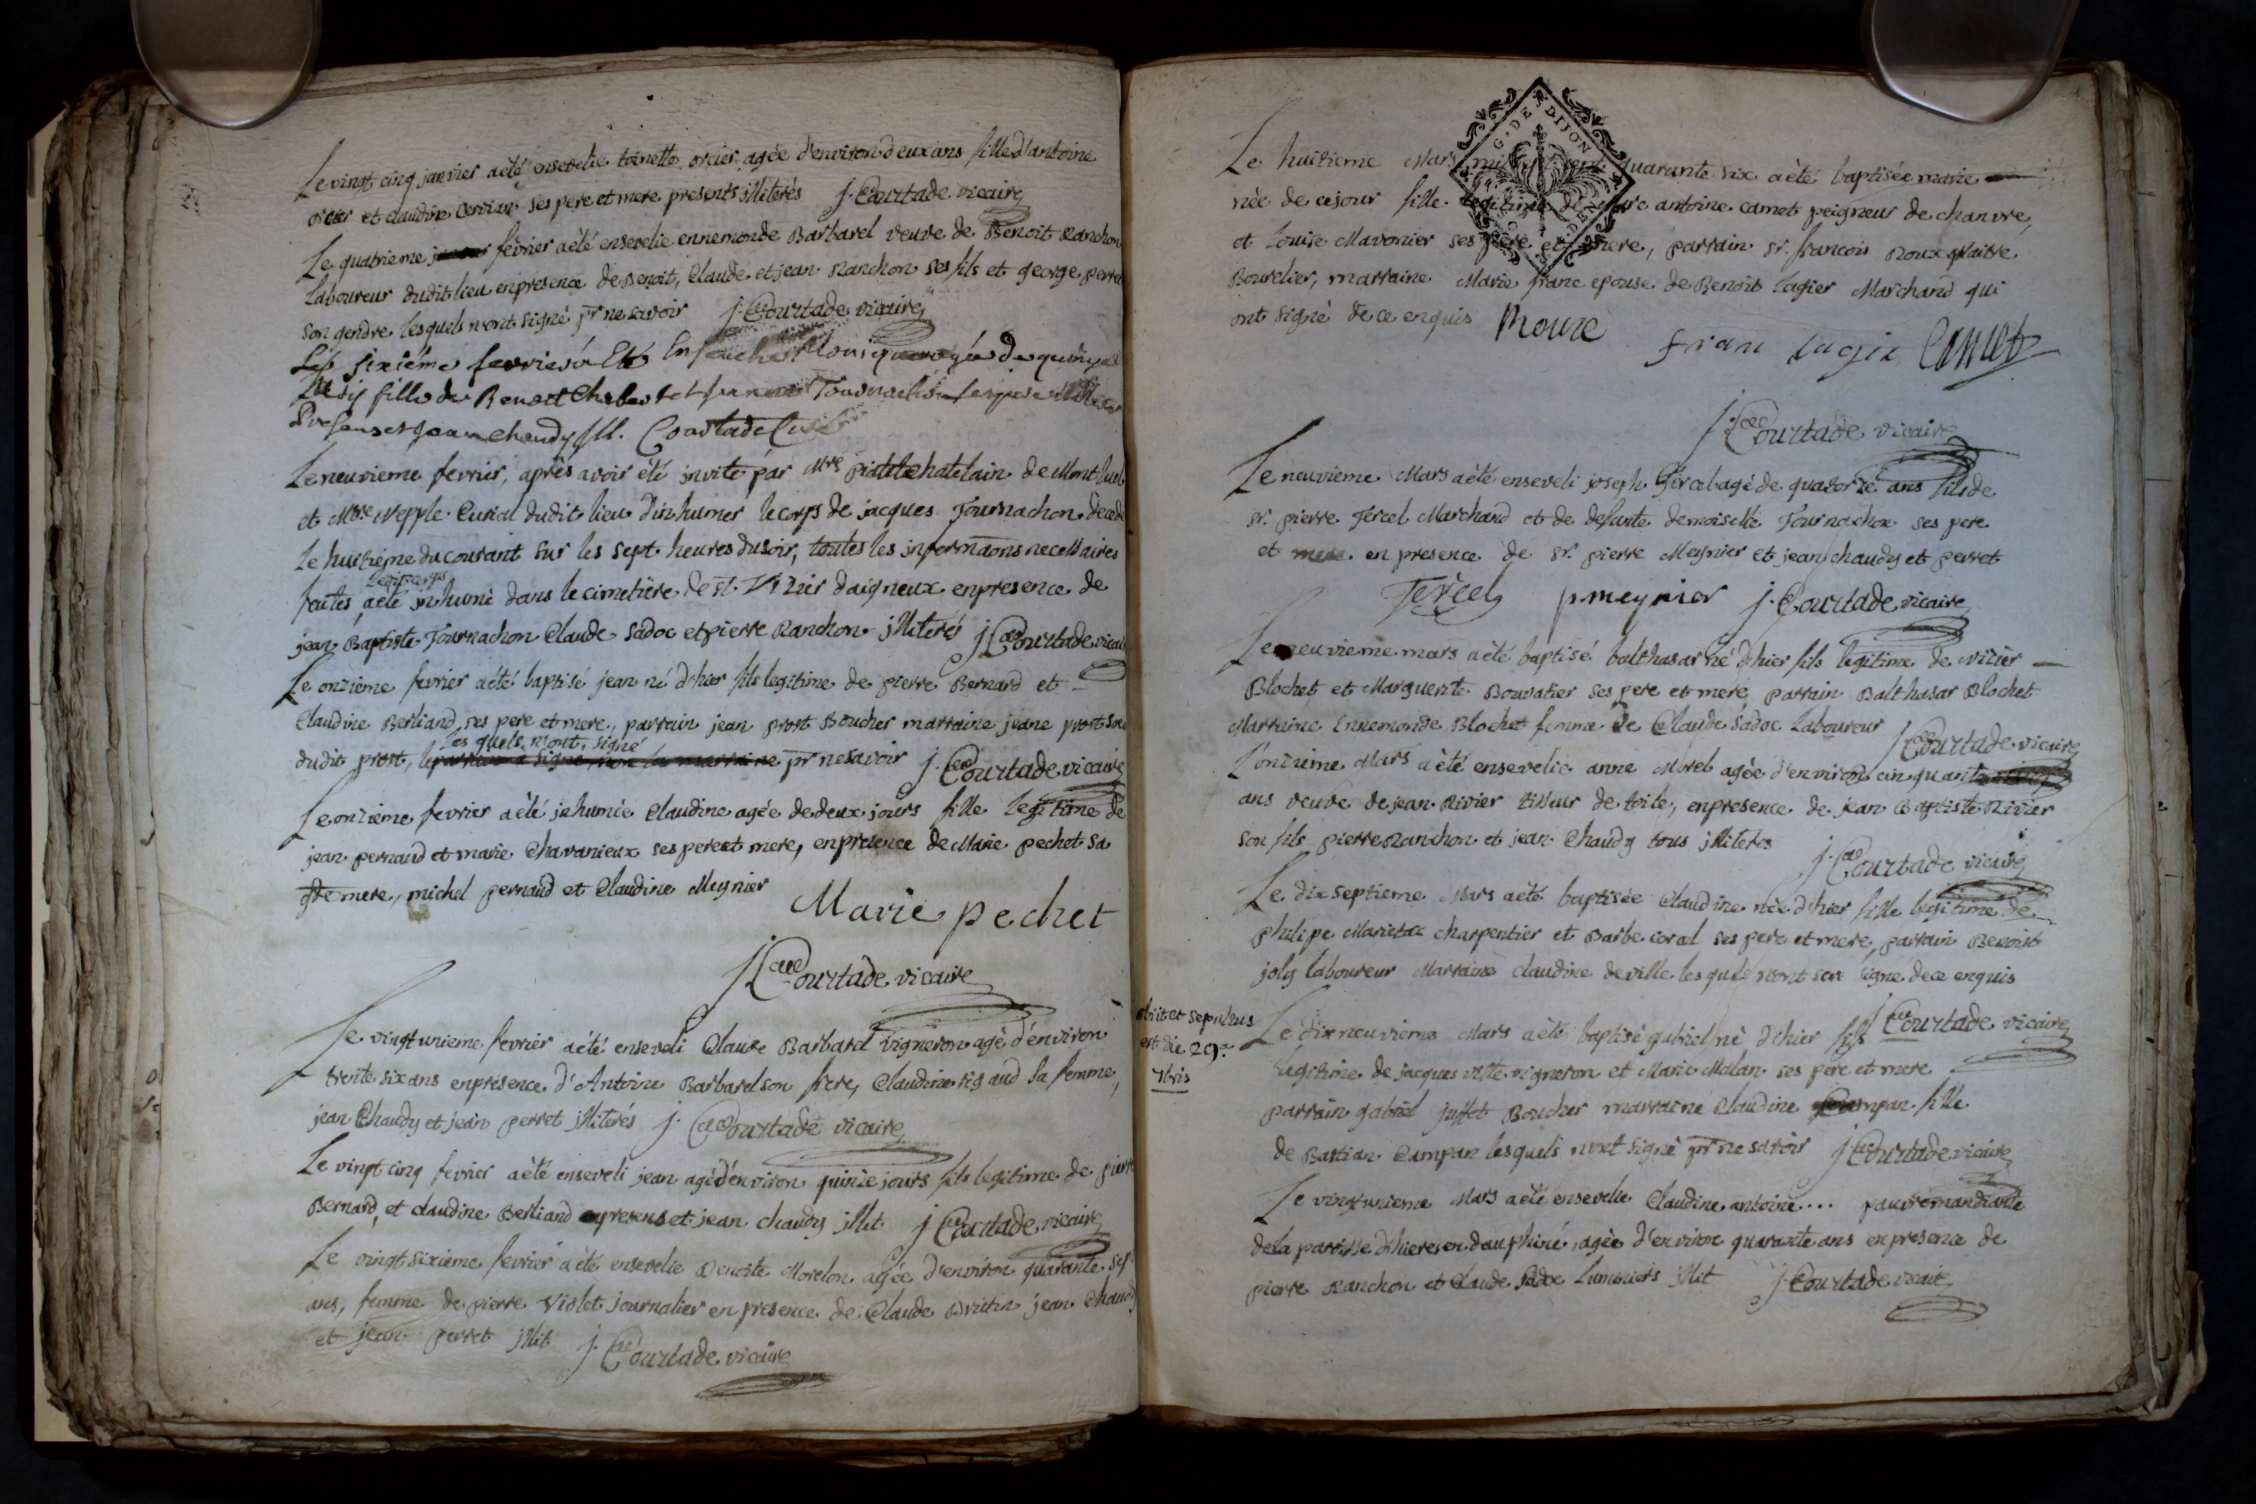 Le vingt cinq janvier a èté ensevelie toinette orcier agée d'environ deux ans fille d'antoine
orcier et claudine ses pere et mere presents illiterès j. Courtade vicaire
Le quatrieme fevrier a èté ensevelie ennemonde Barbarel veuve de Benoit Ranchon
Laboureur dudit lieu en presence de Benoit, Claude et jean Ranchon ses fils et george perret
son gendre lesquels n'ont signé pr ne savoir j. Courtade vicaire
sixiéme fevrie a Eté
fille de Benoit et
jean Chaudy ill. Courtade Curé
Le neuvieme fevrier, après avoir été invité par Mre chatelain de Montluel
et Mtre Nepple Curial dudit lieu d'inhumer le corps de jacques Tournachon decede
le huitieme du courant sur les sept heures du soir, toutes les informaons necessaires
faites, a èté inhumè dans le cimetière de st. Vizier daigneux en presence de
jean Baptiste Tournachon Claude Sadoc et pierre Ranchon illiterés j Courtade vicaire
Le onzième fevrier a èté baptisé jean né d'hier fils legitime de pierre Bernard et
Claudine Berliand ses pere et mere, parrain jean prost Boucher marraine jeane prost
dudit prost, lesquels n'ont signé pr ne savoir j. Courtade vicaire
Le onzieme fevrier a èté inhumée Claudine agée de deux jours fille legitime de
jean pernaud et marie Chavanieux ses pere et mere, en presence de Marie pechet sa
gde mere, michel pernaud et Claudine Meynier
Marie pechet
j Courtade vicaire
Le vingt unieme fevrier a èté enseveli Claude Barbarel vigneron agè d'environ
trente six ans en presence d'Antoine Barbarel son frere, Claudine rigaud sa femme,
jean Chaudy et jean perret illiterés j. Courtade vicaire
Le vingt cinq fevrier a èté enseveli jean agé d'environ quinze jours fils legitime de pierre
Bernard, et claudine Berliand presens et jean chaudy illit j Courtade vicaire
Le vingt sixieme fevrier a èté ensevelie Benoite Morelon agée d'environ quarante sept
ans, femme de pierre Violet journalier en presence de Claude jean Chaudy
et jean perret illit j. Courtade vicaire
G. DE DIJON
Le huitieme Mars quarante six a èté baptisée marie
née de ce jour fille legitime de antoine camet peigneur de chanvre,
et Louise Mavonier ses pere et mere, parrain sr. francois Roux Maitre
Bourelier, marraine Marie franc epouse de Benoit lagier Marchand qui
ont signè de ce enquis Roux
franc lagier Camet
j. Courtade vicaire
Le neuvieme Mars a èté enseveli joseph Tercel agé de quatorze ans fils de
sr. pierre Tercel Marchand et de defunte demoiselle Tournachon ses pere
et mere. en presence de sr. pierre Meynier et jean chaudy et perret
Tercel p meynier j. Courtade vicaire
Le neuvieme mars a èté baptisé balthasar né d'hier fils legitime de vizier
Blochet et Marguerite Bouvatier ses pere et mere, parrain Balthasar Blochet
Marraine Ennemonde Blochet femme de Claude Sadoc laboureur j Courtade vicaire
L'onzieme Mars a èté ensevelie anne Morel agée d'environ cinquante
ans veuve de jean Rivier tisseur de toile, en presence de jean Baptiste Rivier
son fils pierre Ranchon et jean Chaudy tous illiterés
j. Courtade vicaire
Le dix septieme Mars a èté baptisée Claudine née d'hier fille legitime de
philipe charpentier et Barbe coral ses pere et mere, parrain Benoist
joly laboureur Marraine claudine deville lesquels n'ont signé de ce enquis
j Courtade vicaire
obiit et sepultus
est die 29a
7bris
Le dix neuvieme Mars a èté baptisé gabriel né d'hier fils
legitime de jacques vigneron et Marie Molan ses pere et mere
parrain gabriel juffet Boucher marraine Claudine Campan fille
de Bastian Campan lesquels n'ont signè pr ne savoir j Courtade vicaire
Le vingt unieme Mars a èté ensevelie Claudine antoine... pauvre mandiante
de la parisse d'hieres en dauphiné, agée d'environ quarante ans en presence de
pierre Ranchon et Claude Sadoc Luminiers illit j. Courtade vicaire